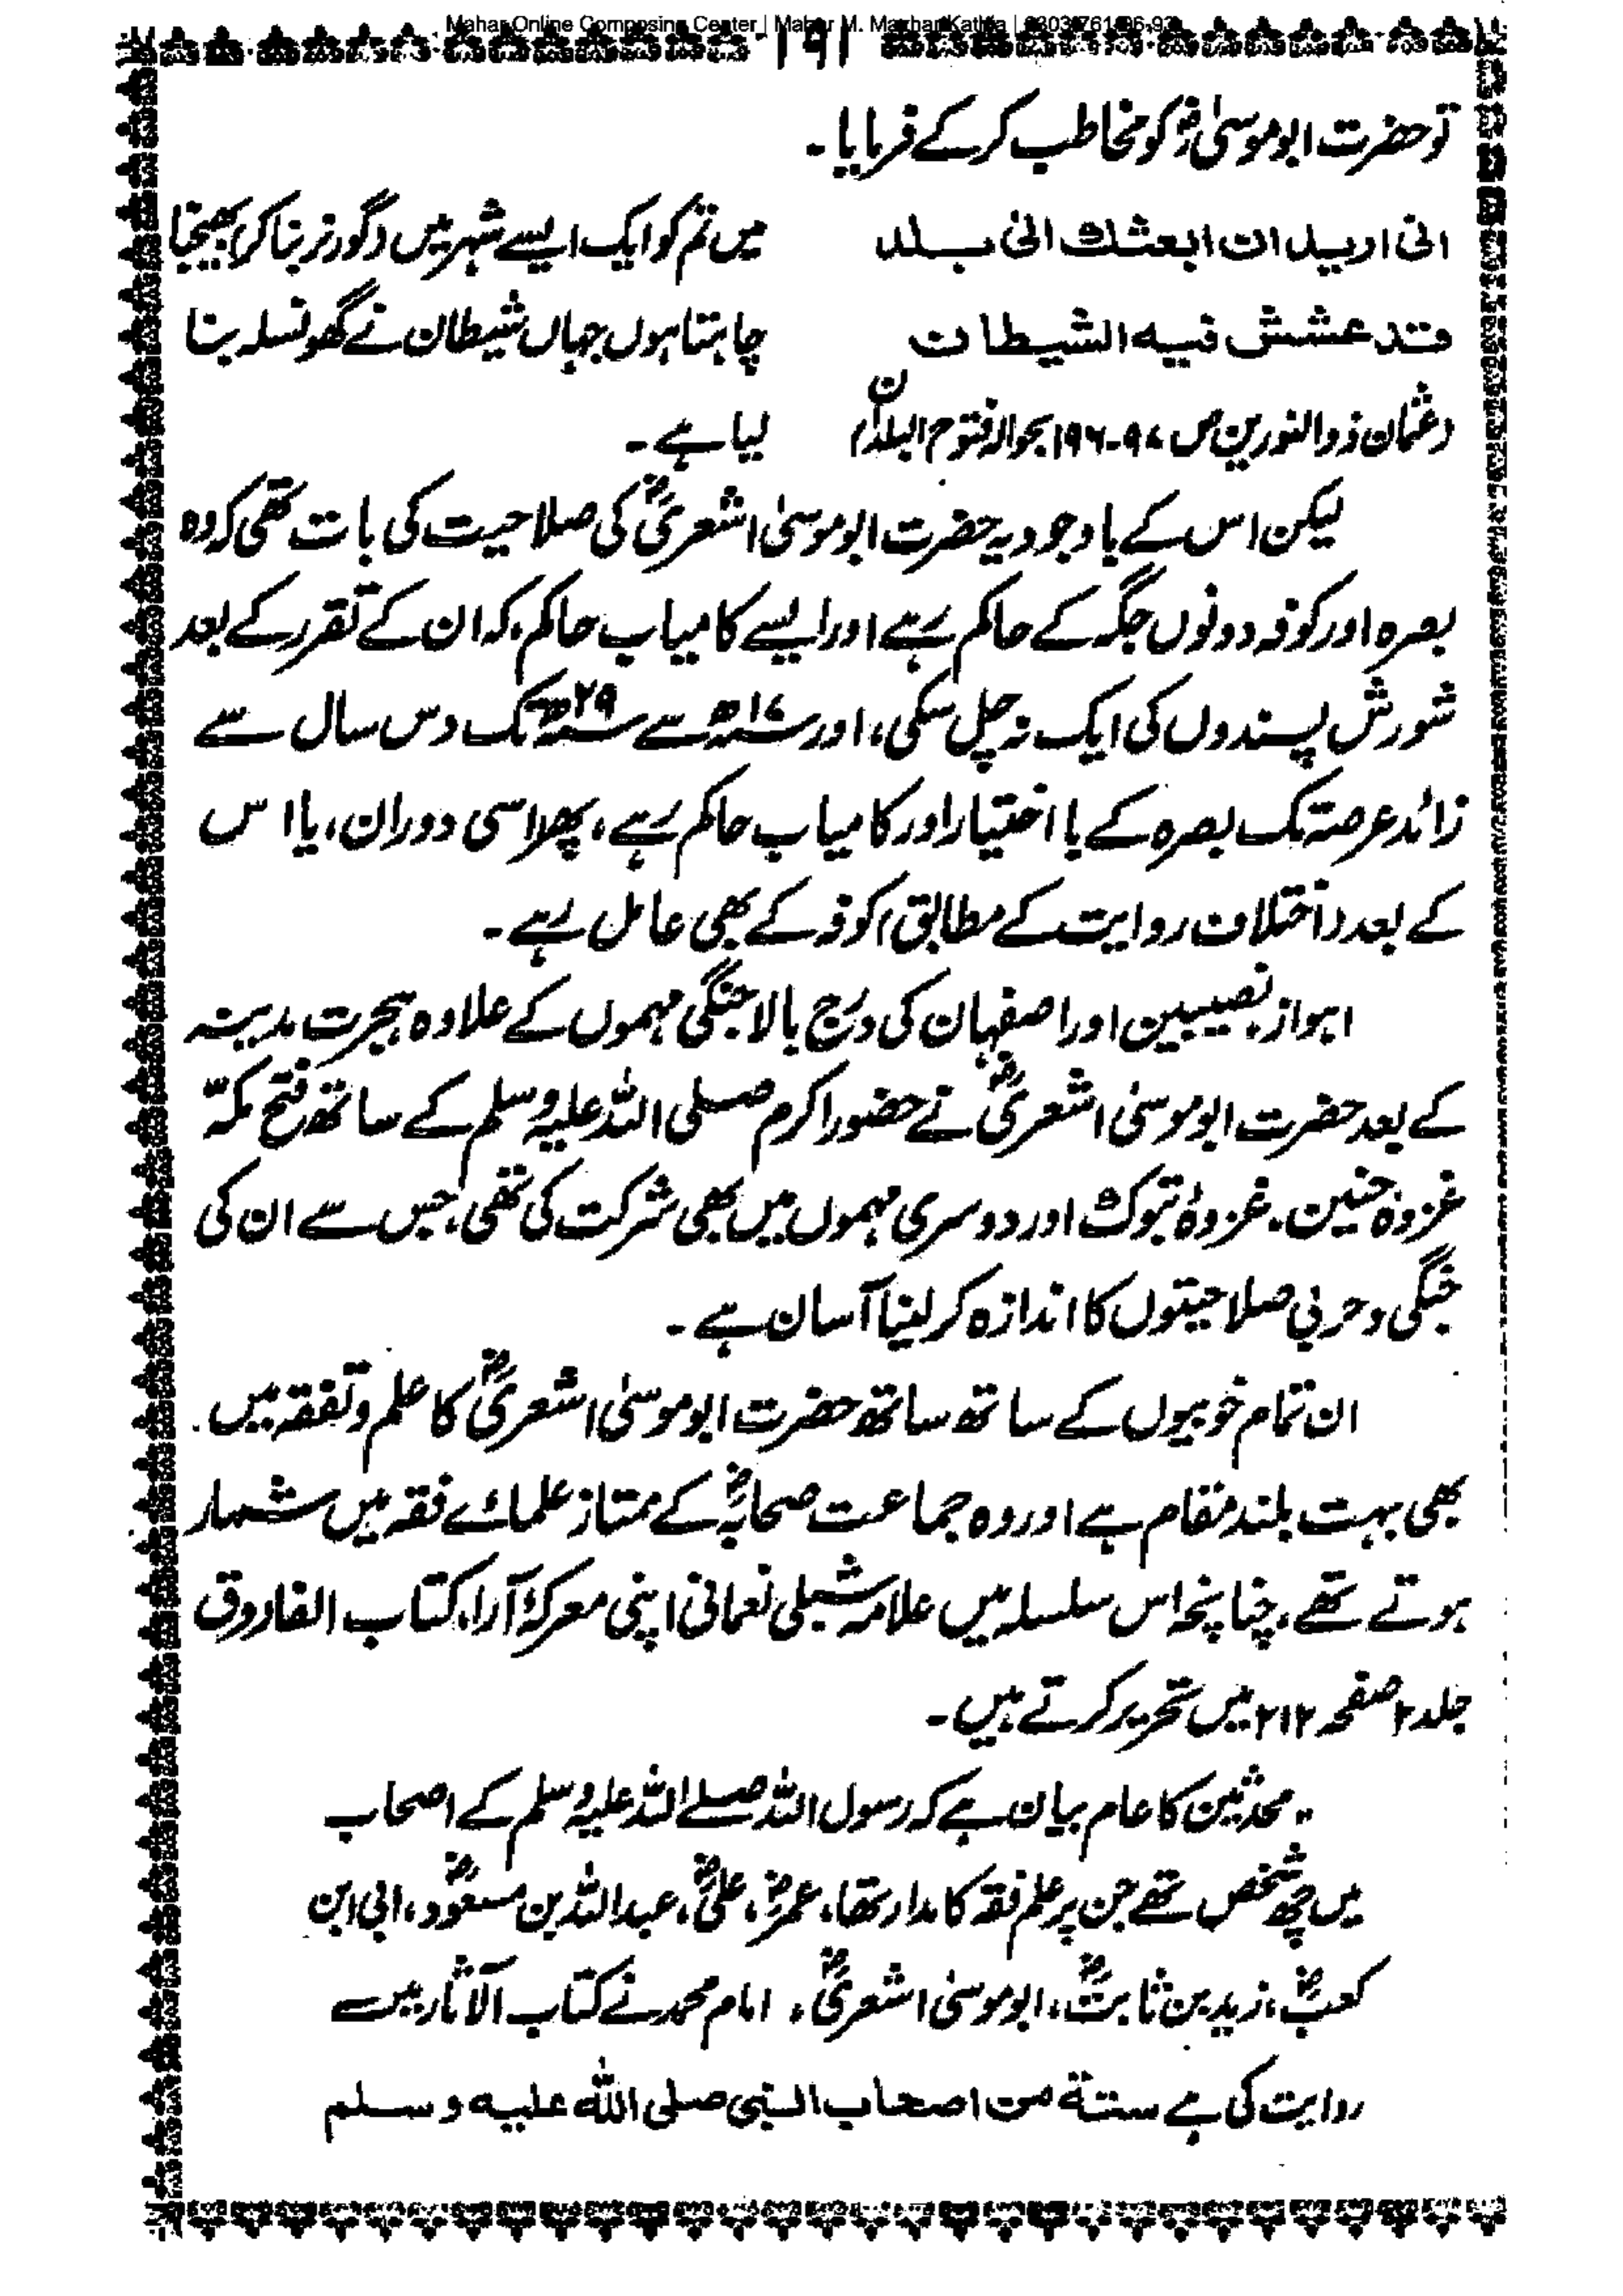 Mahar Online Composing Center | Mahar M. Mazhar Kathia | 0303-761-96-93
۱۹۱
تو حضرت ابوموسیٰؓ کو مخاطب کر کے فرمایا۔
انی ارید ان ابعثک الی بلد
قد عشش فیہ الشیطان
(عثمان ذوالنورین ص ۹۷-۱۹۶ بحوالہ فتوح البلدان)
میں تم کو ایک ایسے شہر میں (گورنر بنا کر) بھیجنا
چاہتا ہوں جہاں شیطان نے گھونسلہ بنا
لیا ہے۔
لیکن اس کے باوجود یہ حضرت ابوموسیٰ اشعریؓ کی صلاحیت کی بات تھی کہ وہ
بصرہ اور کوفہ دونوں جگہ کے حاکم رہے اور ایسے کامیاب حاکم، کہ ان کے تقرر کے بعد
شورش پسندوں کی ایک نہ چل سکی، اور ۱۷ھ سے ۲۹ھ تک دس سال سے
زائد عرصہ تک بصرہ کے با اختیار اور کامیاب حاکم رہے، پھر اسی دوران، یا اس
کے بعد (اختلاف روایت کے مطابق) کوفہ کے بھی عامل رہے۔
اہواز نصیبین اور اصفہان کی درج بالا جنگی مہموں کے علاوہ ہجرت مدینہ
کے بعد حضرت ابوموسیٰ اشعریؓ نے حضور اکرم صلی اللہ علیہ وسلم کے ساتھ فتح مکہّ
غزوہ حنین، غزوۂ تبوک اور دوسری مہموں میں بھی شرکت کی تھی، جس سے ان کی
جنگی و حربی صلاحیتوں کا اندازہ کر لینا آسان ہے۔
ان تمام خوبیوں کے ساتھ ساتھ حضرت ابوموسیٰ اشعریؓ کا علم و تفقہ میں
بھی بہت بلند مقام ہے اور وہ جماعت صحابہؓ کے ممتاز علمائے فقہ میں شمار
ہوتے تھے، چنانچہ اس سلسلہ میں علامہ شبلی نعمانی اپنی معرکۂ آرا، کتاب الفاروق
جلد ۲ صفحہ ۲۱۲ میں تحریر کرتے ہیں۔
"محدثین کا عام بیان ہے کہ رسول اللہ صلے اللہ علیہ وسلم کے اصحاب
میں چھ شخص تھے جن پر علم فقہ کا مدار تھا، عمرؓ، علیؓ، عبداللہ بن مسعودؓ، ابی ابن
کعبؓ، زید بن ثابتؓ، ابوموسیٰ اشعریؓ، امام محمد نے کتاب الآثار میں
روایت کی ہے ستۃ من اصحاب النبی صلی اللہ علیہ وسلم